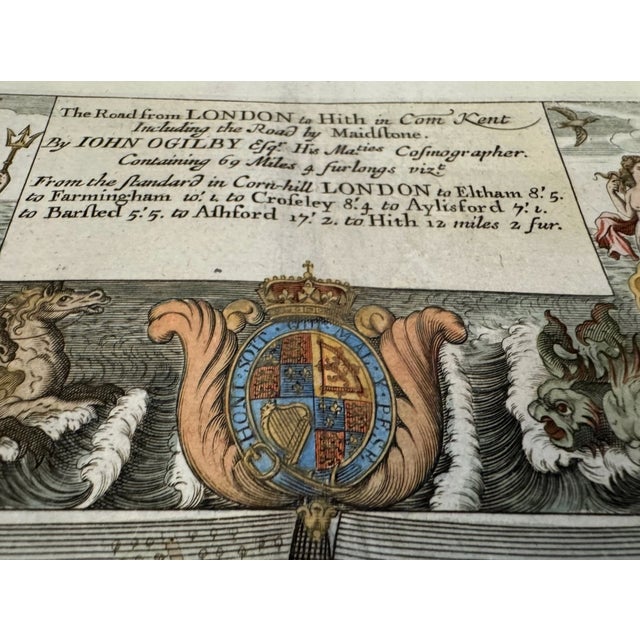 The Road from LONDON to Hith in Com Kent
Including the Road by Maidſtone.
By IOHN OGILBY Eſqr. His Maties Coſmographer.
Containing 69 Miles 4 furlongs vizt
From the ſtandard in Corn-hill LONDON to Eltham 8'. 5.
to Farmingham 10'. 1. to Croſeley 8'. 4 to Ayliſford 7'. 1.
to Barſted 5'. 5. to Aſhford 17'. 2. to Hith 12 miles 2 fur.
HONI·SOIT·QUI·MAL·Y·PENSE